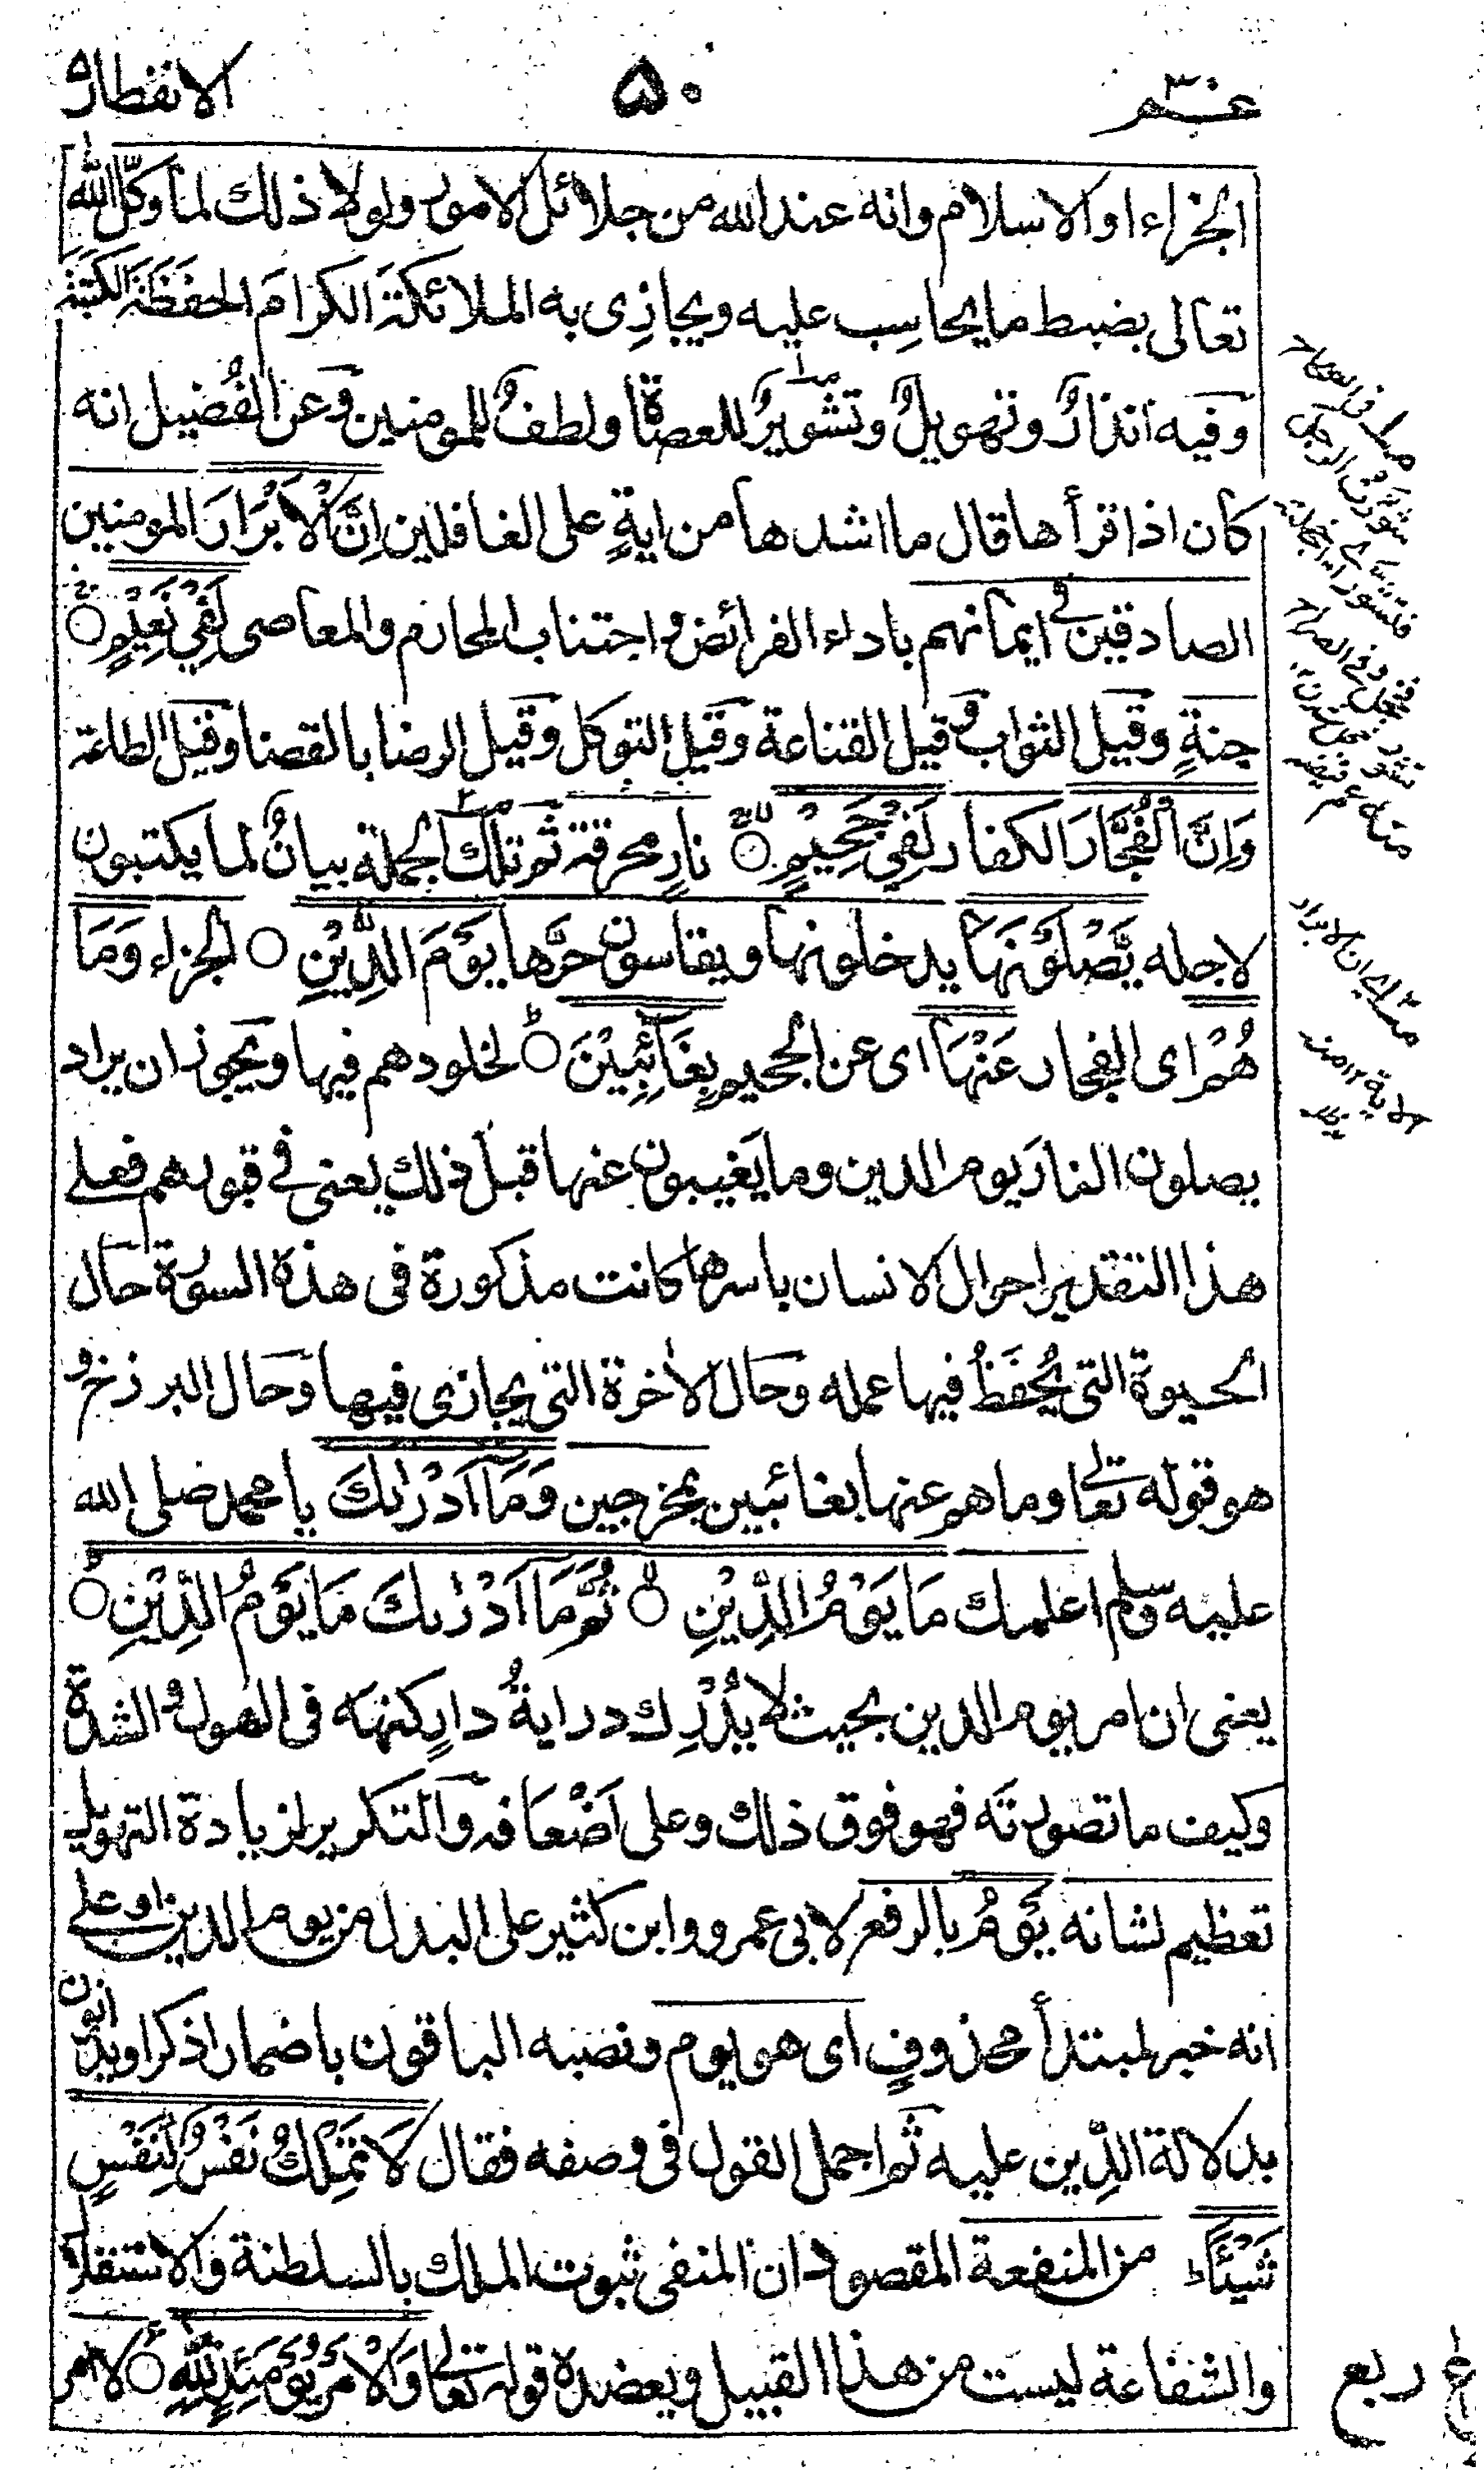 عم ٣٠
۵۰
الانفطار
الجزاء او الاسلام وانه عند الله من جلائل الامور ولولا ذلك لما وكّل الله
تعالى بضبط ما يحاسِب عليه ويجازِى به الملائكةَ الكرامَ الحفَظَةَ الكتبَةَ
وفيه انذارٌ وتهويلٌ وتشويرٌ للعصاة ولطفٌ للمومنين وعن الفُضيل انه
كان اذا قرأها قال ما اشدها من ايةٍ على الغافلين اِنَّ الْاَبْرَارَ المومنين
الصادقين فى ايمانهم باداء الفرائض واجتناب المحارم والمعاصى لَفِيْ نَعِيْمٍ ○
جنةٍ وقيل الثواب وقيل القناعة وقيل التوكل وقيل الرضا بالقضا وقيل الطاعة
وَاِنَّ الْفُجَّارَ الكفار لَفِيْ جَحِيْمٍ ○ نارٍ محرقة ثم تلك الجملة بيانٌ لما يكتبون
لاجله يَّصْلَوْنَهَا يدخلونها ويقاسون حرَّها يَوْمَ الدِّيْنِ ○ الجزاء وَمَا
هُمْ اى الفجار عَنْهَا اى عن الجحيم بِغَآئِبِيْنَ ○ لخلودهم فيها ويجوز ان يراد
يصلون النارَ يوم الدين وما يَغيبون عنها قبل ذلك يعنى فى قبورهم فعلى
هذا التقدير احوال الانسان باسرها كانت مذكورة فى هذه السورة حال
الحيوة التى يُحفَظُ فيها عمله وحال الاخرة التى يجازى فيها وحال البرزخ و
هو قوله تعالى وما هم عنها بغائبين بمخرجين وَمَآ اَدْرٰىكَ يا محمد صلى الله
عليه وسلم اعلمك مَا يَوْمُ الدِّيْنِ ○ ثُمَّ مَآ اَدْرٰىكَ مَا يَوْمُ الدِّيْنِ ○
يعنى ان امر يوم الدين بحيث لا يُدْرِك درايةُ دارٍ كنهَه فى الهول والشدة
وكيف ما تصورتَه فهو فوق ذلك وعلى اَضْعَافه والتكرير لزيادة التهويل
تعظيم لشانه يَوْمُ بالرفع لابى عمرو وابن كثير على البدل من يوم الدين او على
انه خبر لمبتدأ محذوفٍ اى هو يوم ونصبه الباقون باضمار اذكر او يدانون
بدلالة الدِّين عليه ثم اجمل القول فى وصفه فقال لَا تَمْلِكُ نَفْسٌ لِّنَفْسٍ
شَيْئًا من المنفعة المقصود ان المنفى ثبوت الملك بالسلطنة والاستقلال
والشفاعة ليست من هذا القبيل ويعضده قوله تعالى وَالْاَمْرُ يَوْمَئِذٍ لِّلّٰهِ ○ لا امر
اى ان الابرار
الاية ١٢ منه
ربع